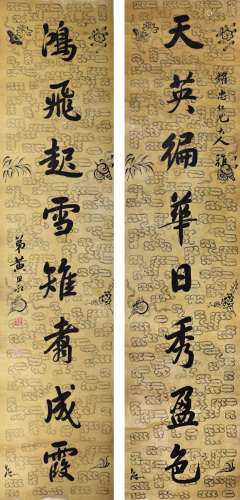 天英徧華日秀盈色
耀忠仁兄大人雅
鴻飛起雪雉翥成霞
弟黃思永